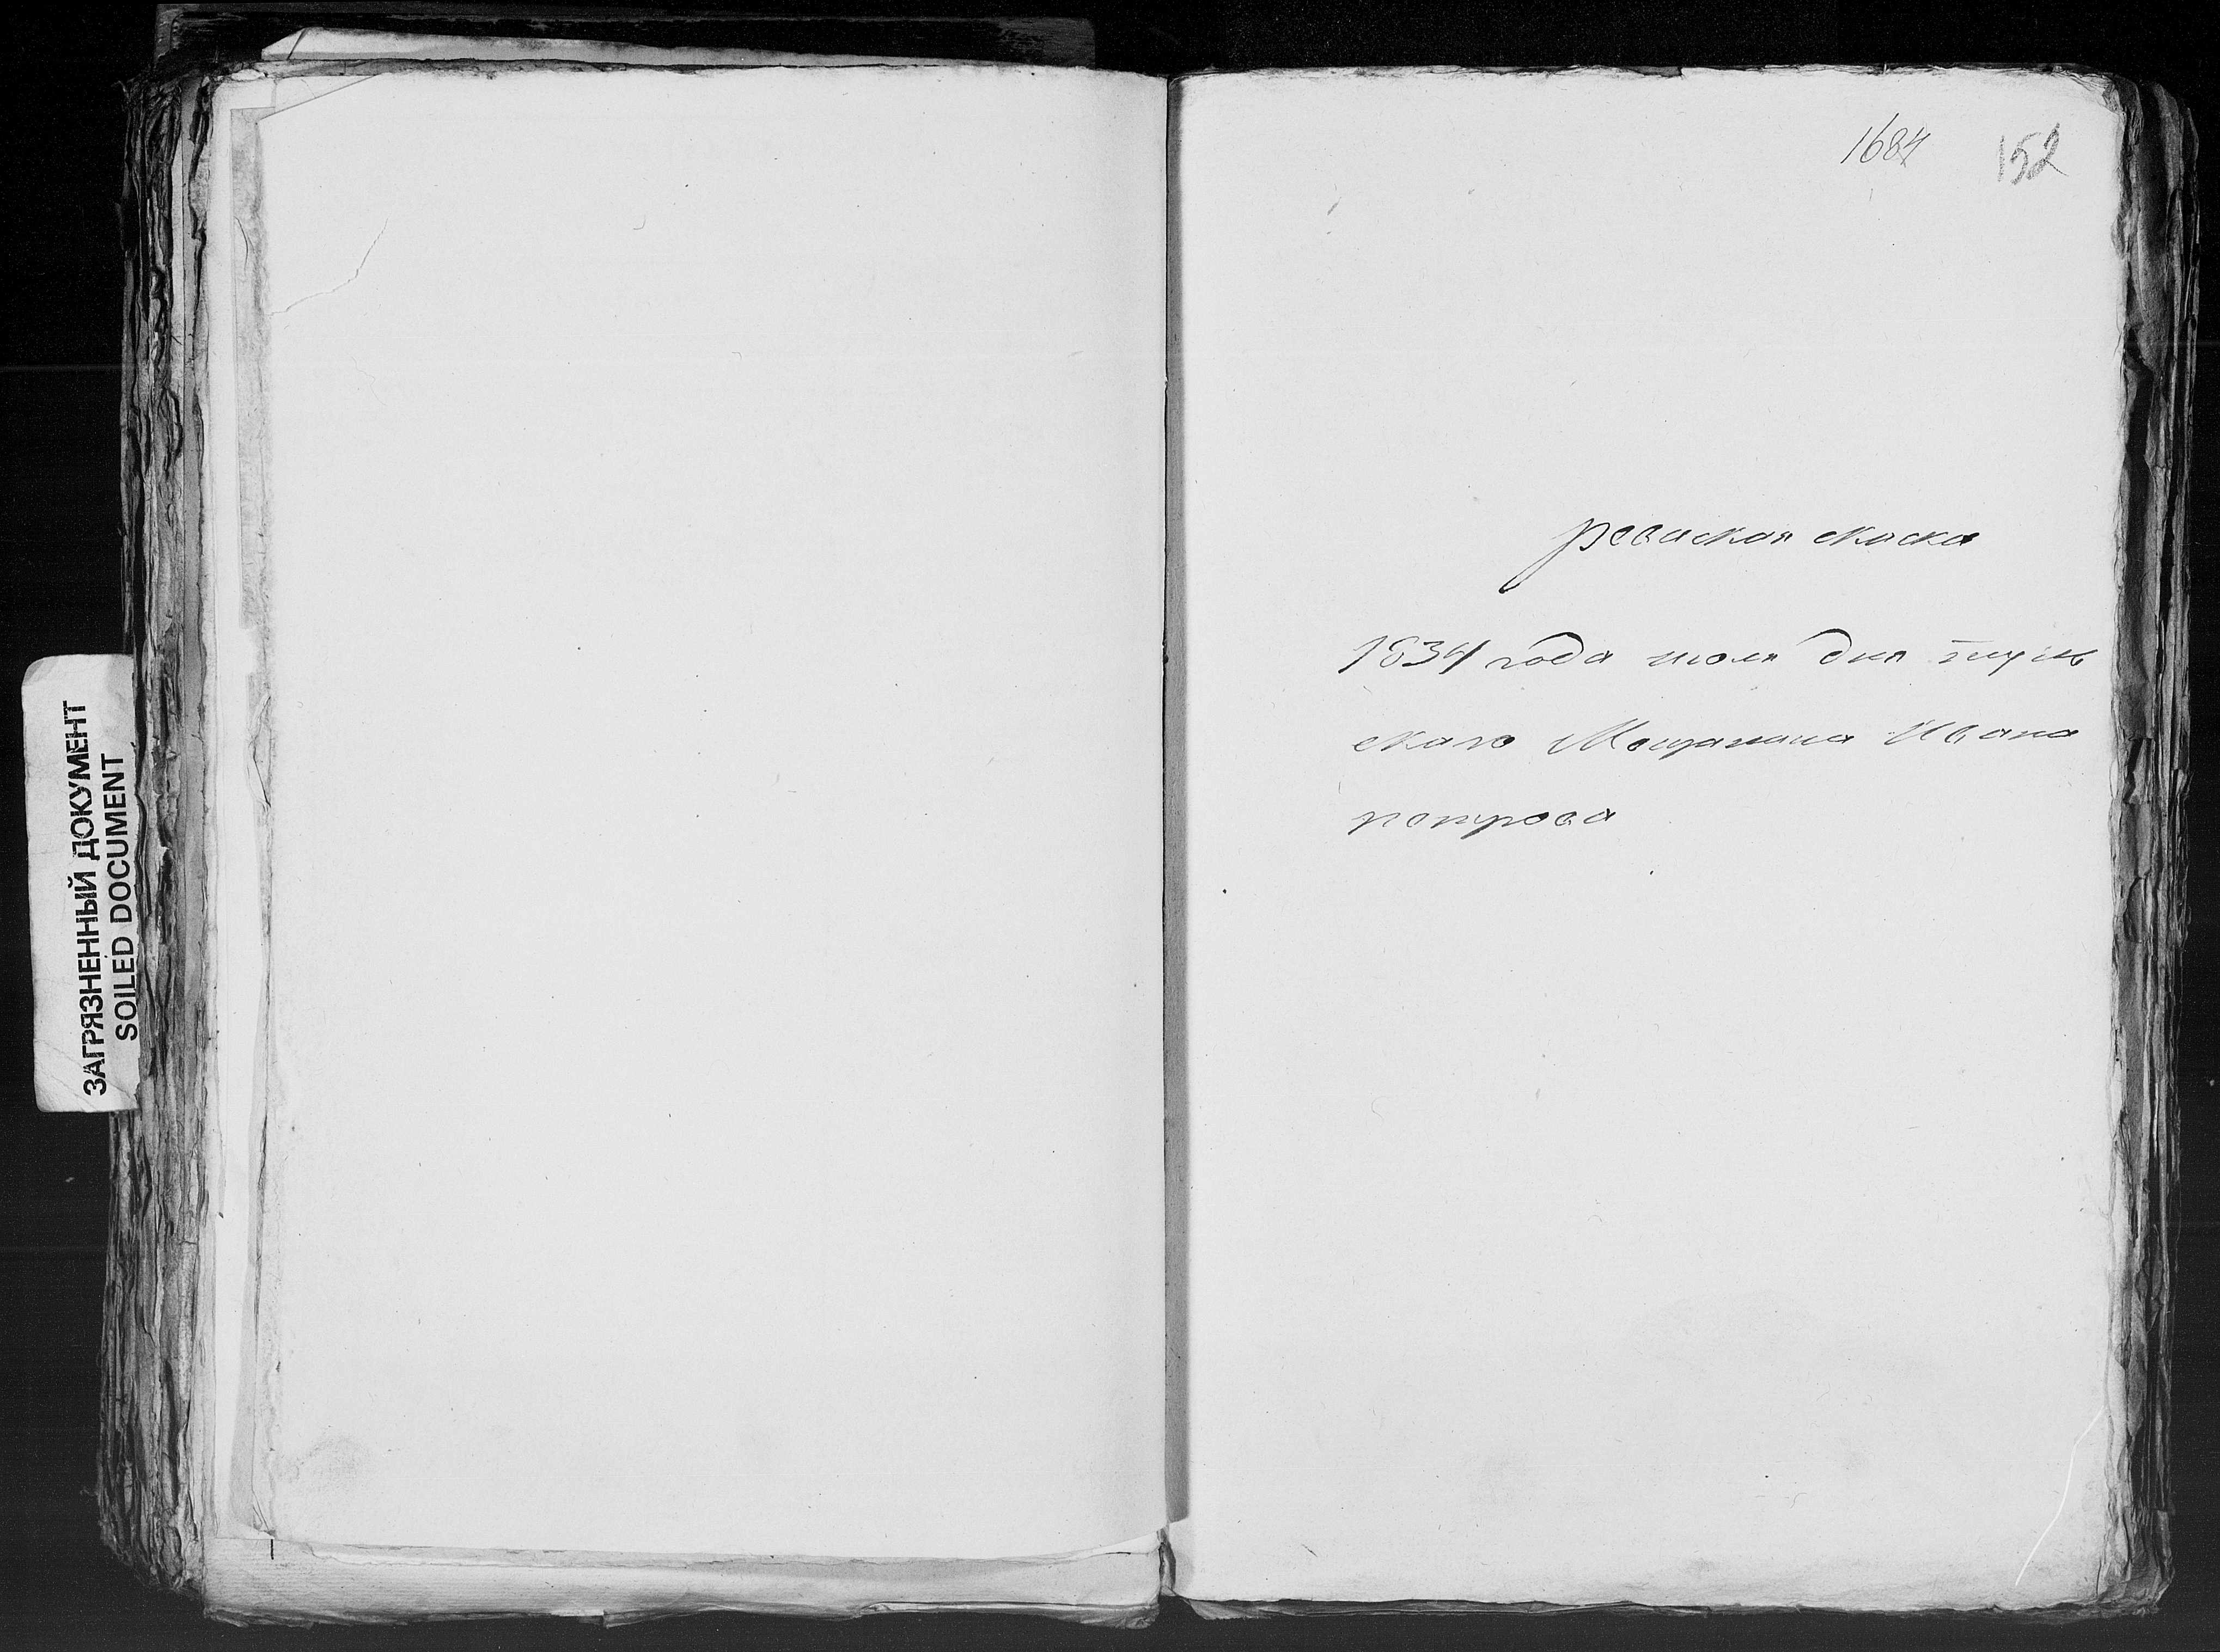 ЗАГРЯЗНЕННЫЙ ДОКУМЕНТ
SOILED DOCUMENT
1684 152
ревиская скаска
1834 года июля дня
скаго Мещанина Ивана
петрова